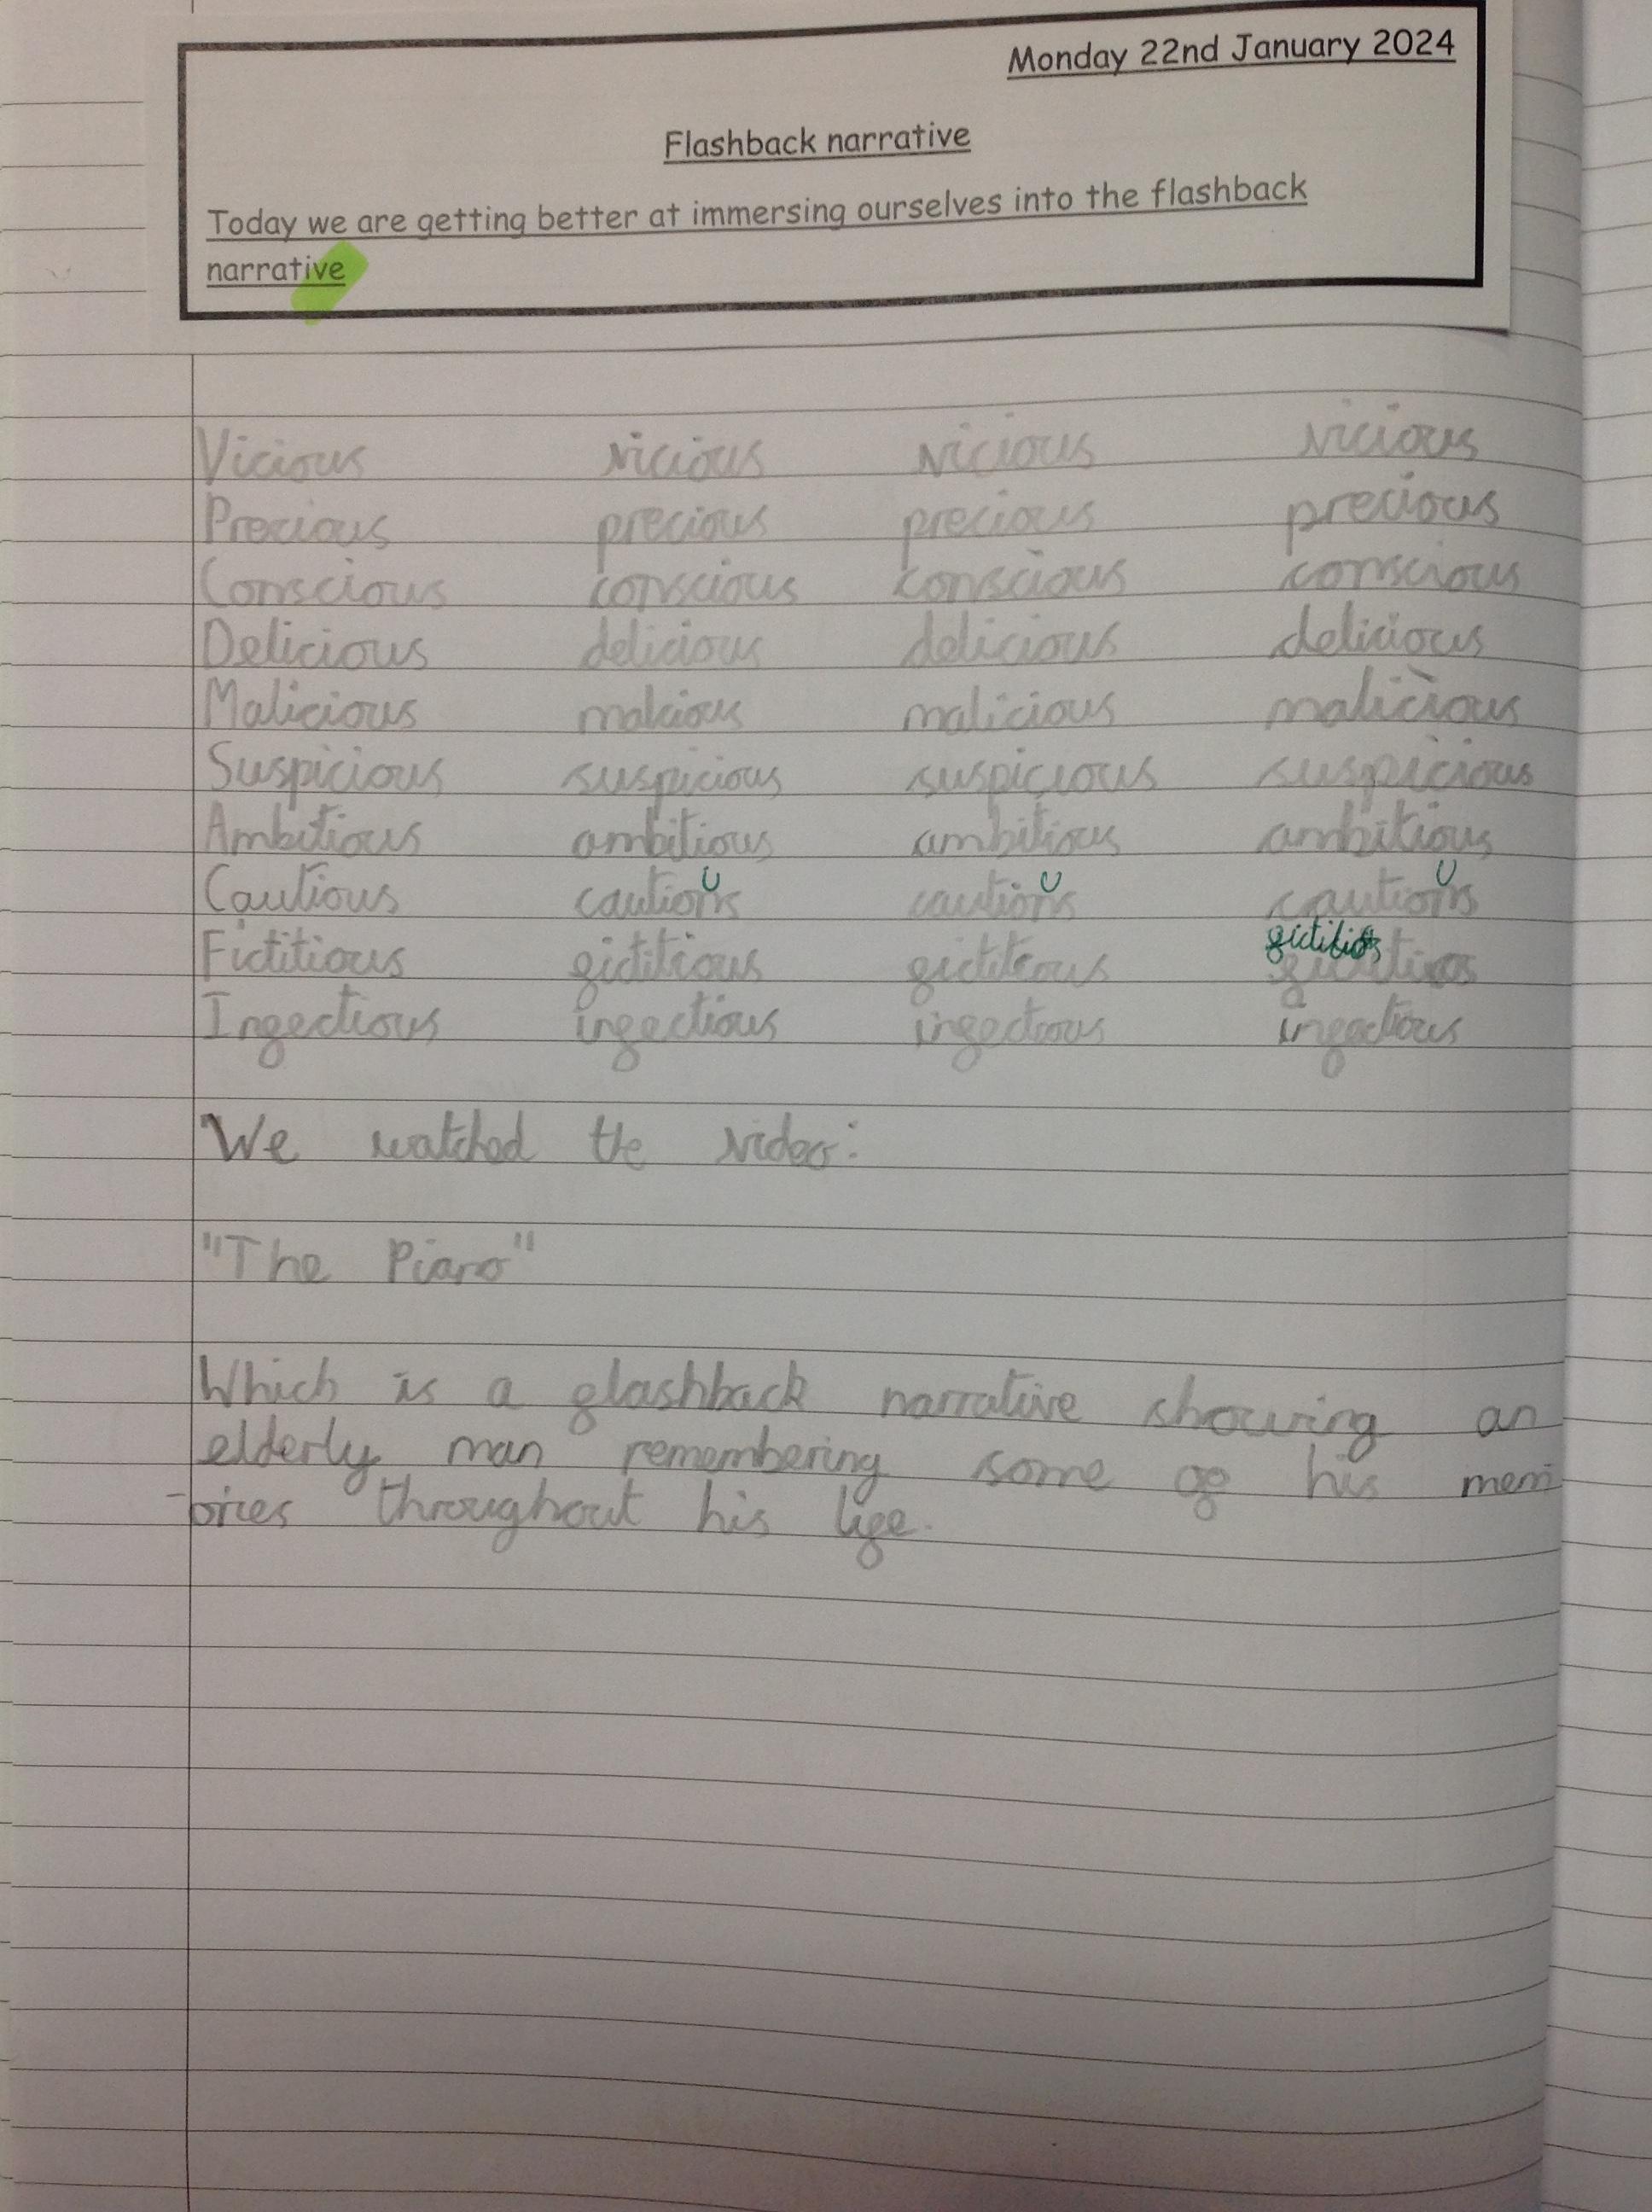 Monday 22nd January 2024
Flashback narrative
Today we are getting better at immersing ourselves into the flashback
narrative
Vicious vicious vicious vicious
Precious precious precious precious
Conscious conscious conscious conscious
Delicious delicious delicious delicious
Malicious malcious malicious malicious
Suspicious suspicious suspicious suspicious
Ambitious ambitious ambitious ambitious
Cautious cautious cautious cautious
Fictitious fictitious fictitious
Infectious infectious infectious infectious
We watched the video:
"The Piano"
Which is a flashback narrative showing an
elderly man remembering some of his mem
-ories throughout his life.